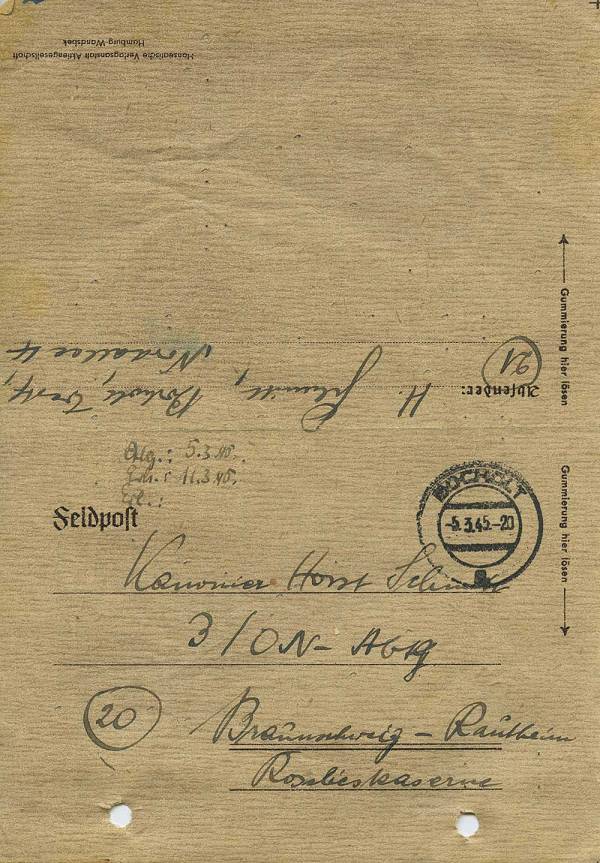 Hanseatische Verlagsanstalt Aktiengesellschaft
Hamburg-Wandsbek
Gummierung hier lösen
Absender: H. Schmitt,
21 Bocholt, Westf,
Nordallee 4
5.3.45.
11.3.45.
Feldpost
BOCHOLT
-5.3.45.-20
a
Gummierung hier lösen
Kanonier Horst Schmitt
3/ON-Abtg
20 Braunschweig-Rautheim
Roselieskaserne